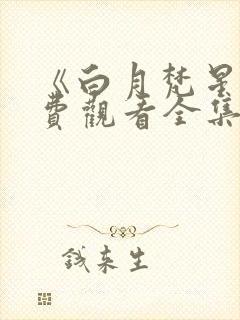 《白月梵星
费觀看全集
钱来生